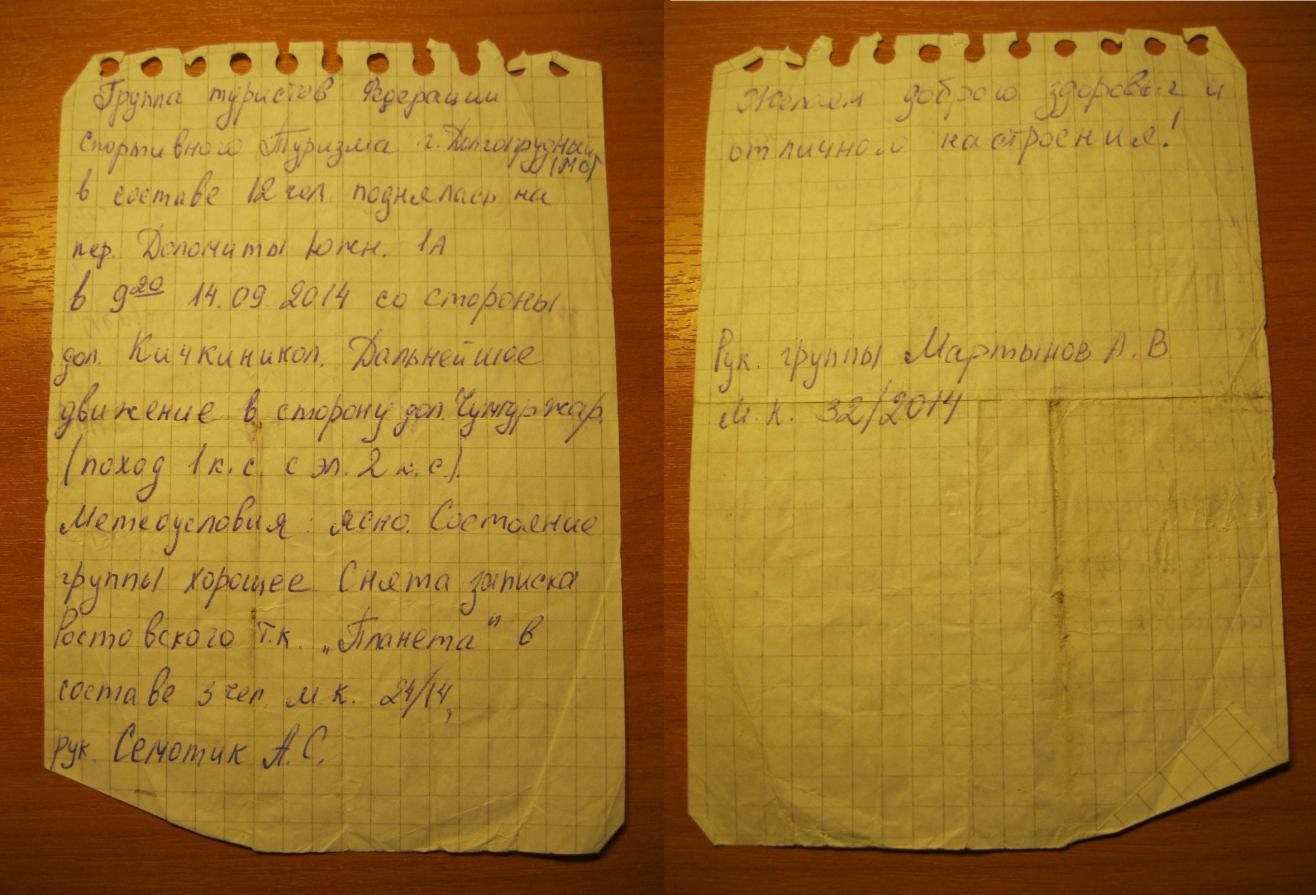 Группа туристов Федерации
спортивного Туризма г. Долгопрудный
(МО)
в составе 12 чел. поднялась на
пер. Доломиты Южн. 1А
в 9 20 14.09.2014 со стороны
дол. Кичкиникол. Дальнейшее
движение в сторону дол. Чунгуржар.
(поход 1 к.с. с эл. 2 к.с.).
Метеоусловия: ясно. Состояние
группы хорошее. Снята записка
Ростовского т.к. „Планета" в
составе 3 чел. м.к. 24/14,
рук. Семотик А.С.
Желаем доброго здоровья и
отличного настроения!
Рук. группы Мартынов А.В
М.К. 32/2014